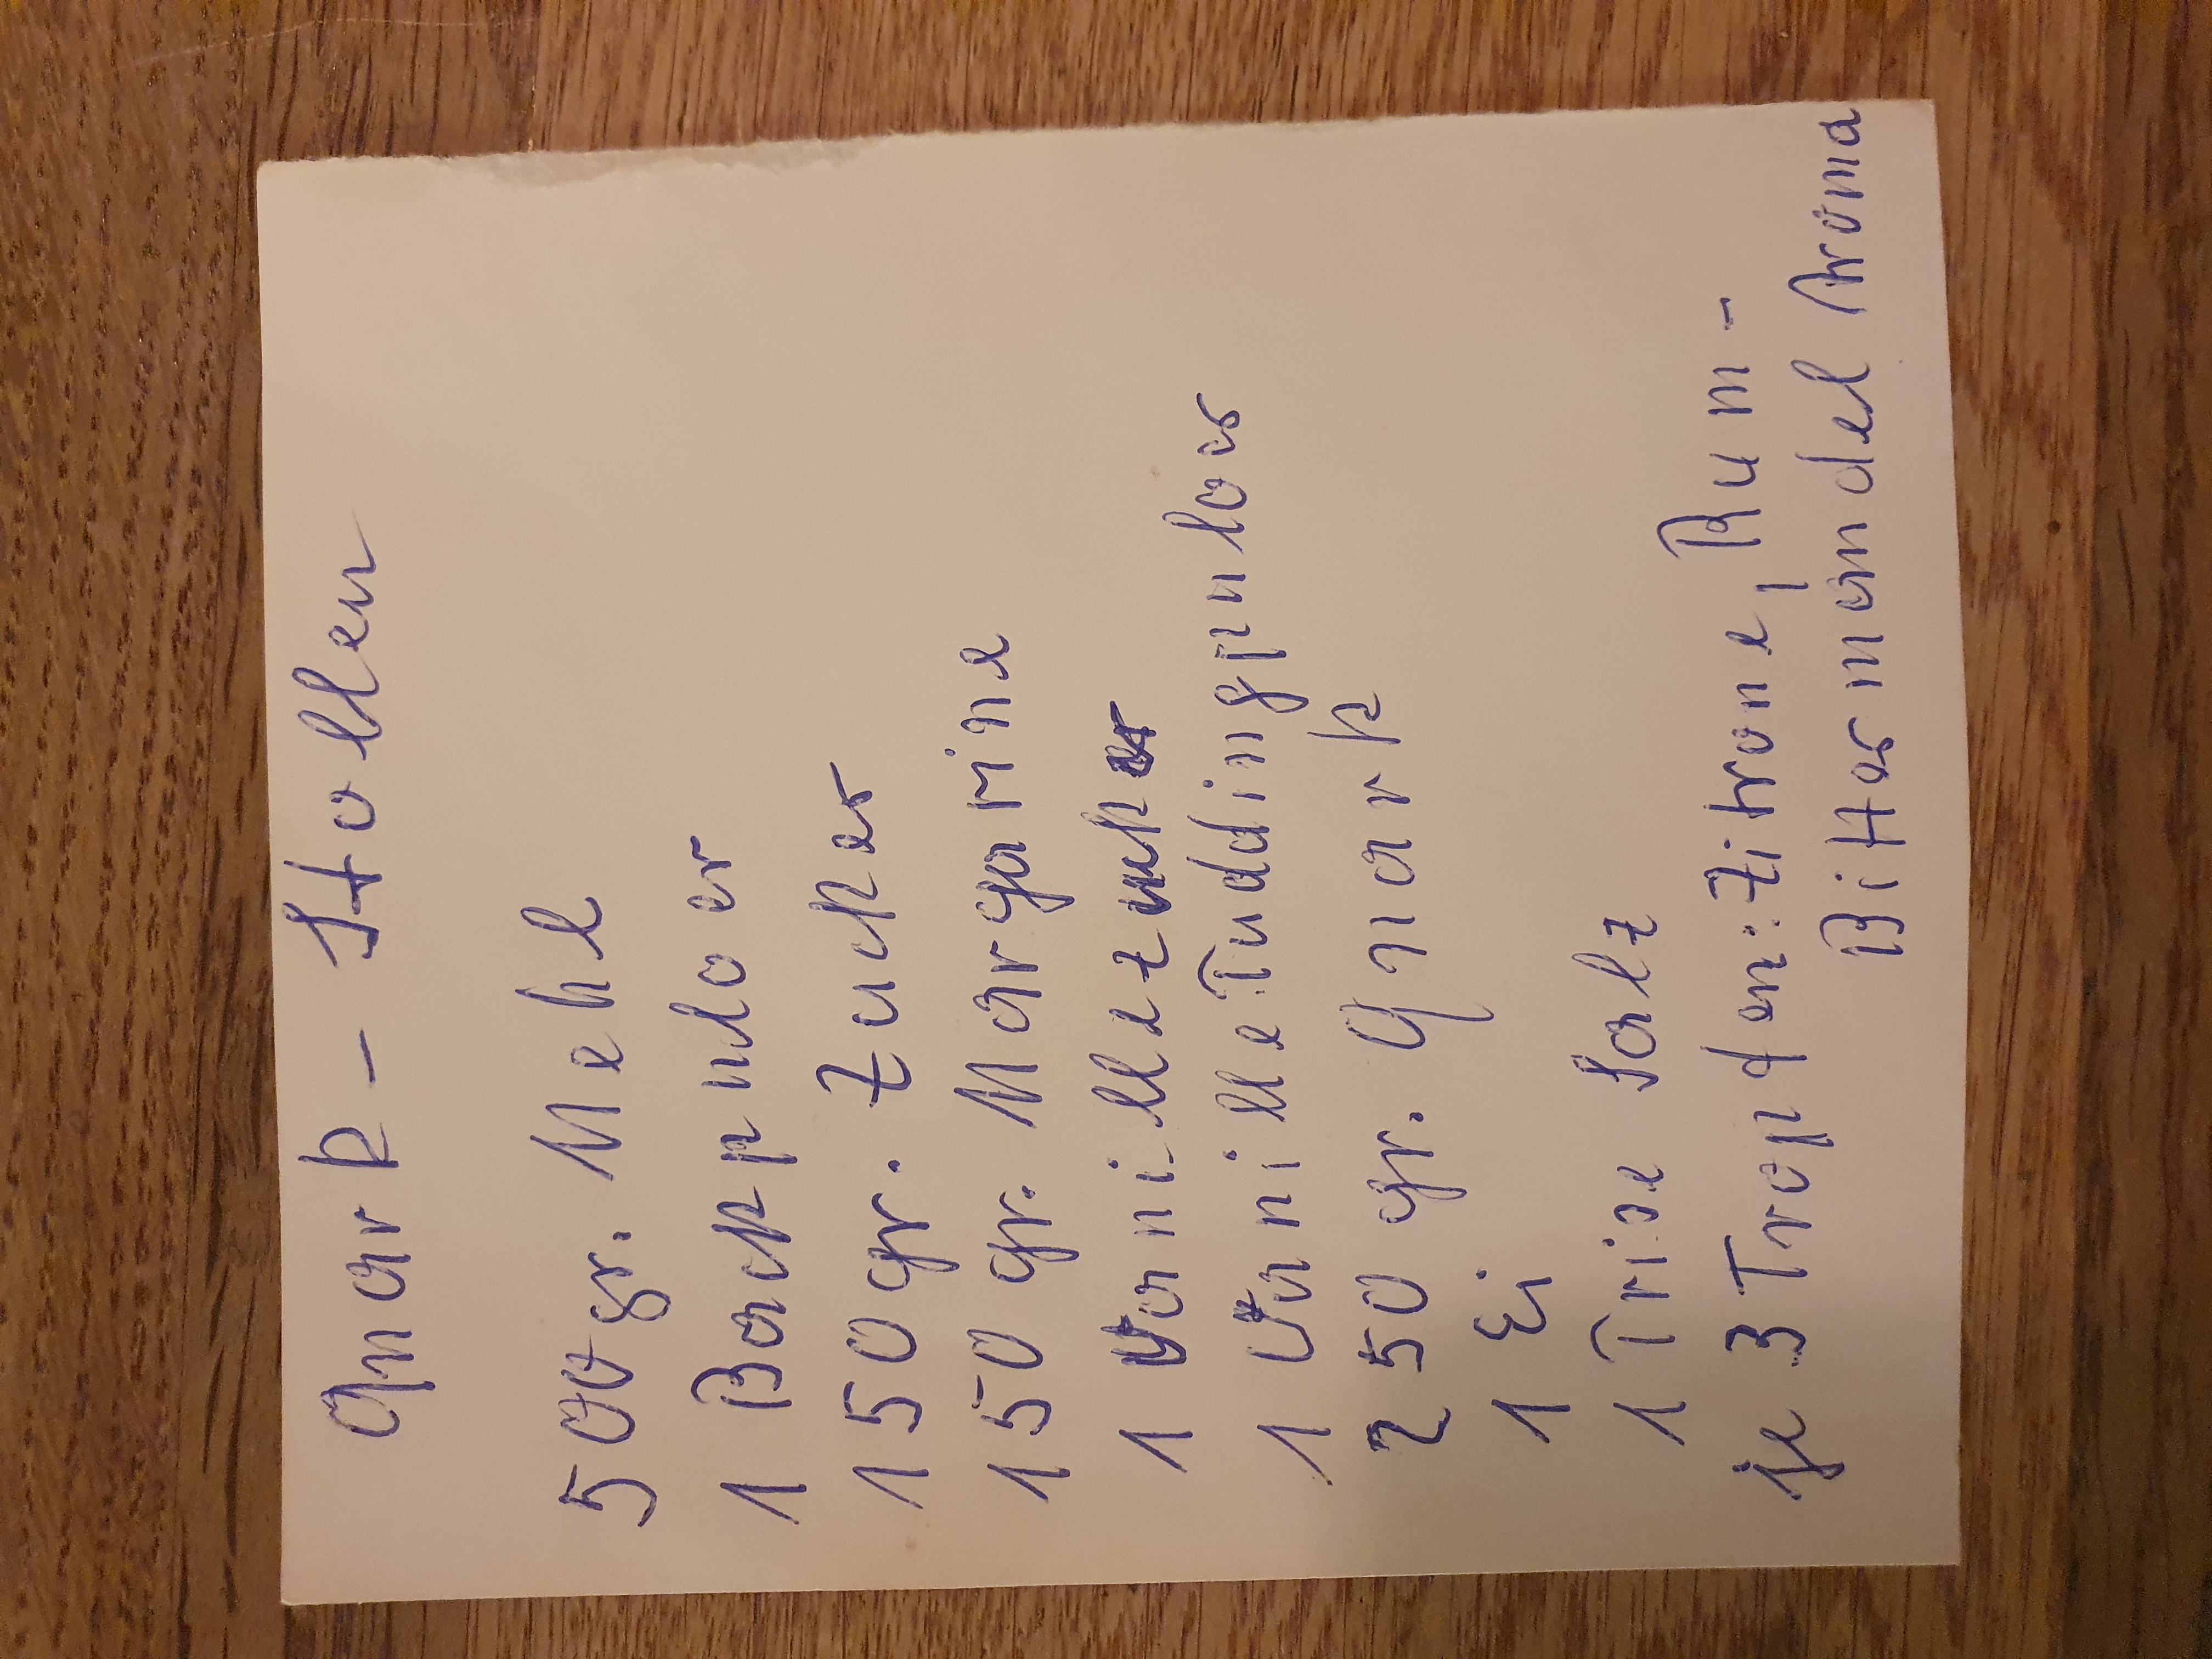 Quark - Stollen
500 gr. Mehl
1 Backpulver
150 gr. Zucker
150 gr. Margarine
1 Vanillezucker
1 Vanille Puddingpulver
250 gr. Quark
1 Ei
1 Prise Salz
je 3 Tropfen: Zitrone, Rum -
Bittermandel Aroma